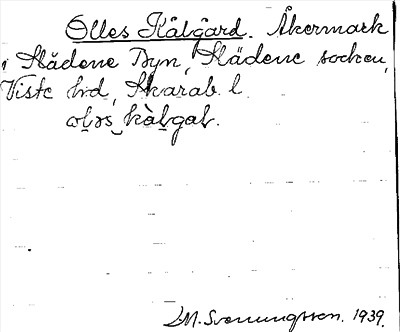 Olles Kålgård. Åkermark
i Slädene Byn, Slädene socken,
Viste hd, Skarab. l.
ɷḷəs kàḷgaḷ.
L.M. Svenungsson. 1939.